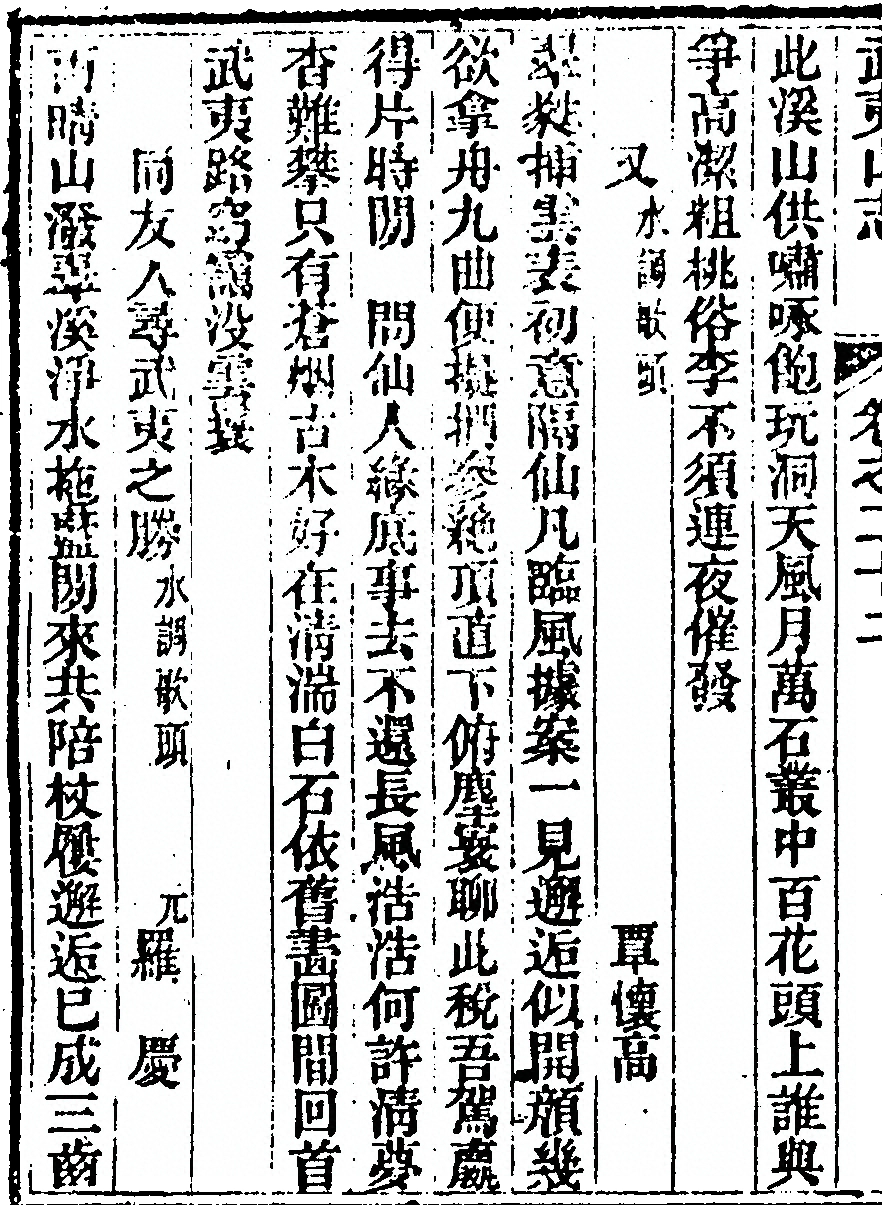 武夷山志 卷之二十二
此溪山供嘯啄飽玩洞天風月萬石叢中百花頭上誰與
爭高潔粗桃俗李不須連夜催發
又 水調歌頭 覃懷高
揷異表初意隔仙凡臨風據案一見邂逅似開顔幾
欲拿舟九曲便擬捫參絶頂直下俯塵寰聊此稅吾駕贏
得片時閒 問仙人緣底事去不還長風浩浩何許淸夢
杳難攀只有蒼烟古木好在淸湍白石依舊畫圖間回首
武夷路 沒雲
同友人尋武夷之勝 水調歌頭 元 羅 慶
雨晴山潑翠溪淨水拖藍閒來共陪杖屨邂逅已成三